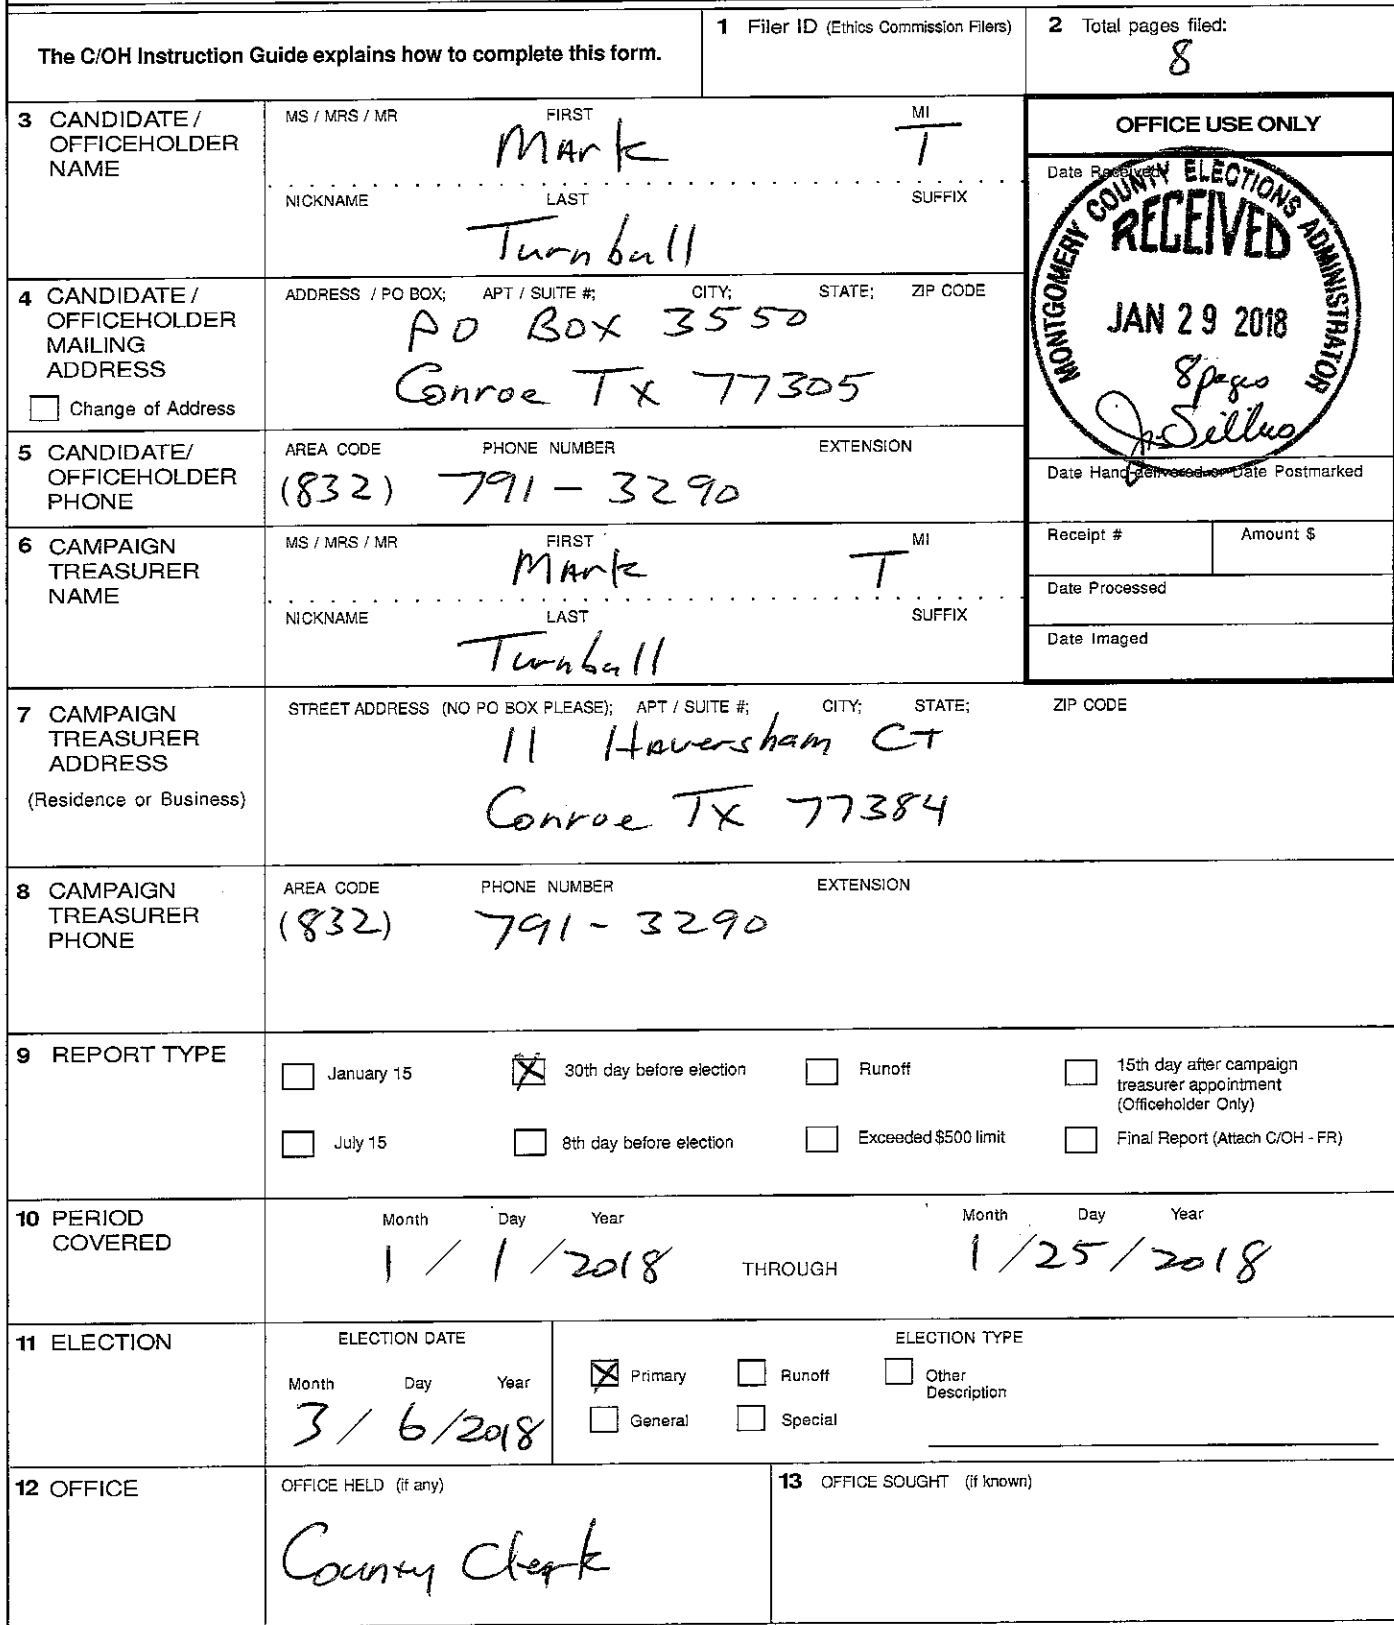 The C/OH Instruction Guide explains how to complete this form.
1 Filer ID (Ethics Commission Filers)
2 Total pages filed:
8
3 CANDIDATE / OFFICEHOLDER NAME
MS / MRS / MR FIRST MI
Mark T
NICKNAME LAST SUFFIX
Turnbull
OFFICE USE ONLY
Date Received
MONTGOMERY COUNTY ELECTIONS ADMINISTRATOR
RECEIVED
JAN 29 2018
8 pages
Date Hand-delivered or Date Postmarked
Receipt # Amount $
Date Processed
Date Imaged
4 CANDIDATE / OFFICEHOLDER MAILING ADDRESS
Change of Address
ADDRESS / PO BOX; APT / SUITE #; CITY; STATE; ZIP CODE
PO BOX 3550
Conroe TX 77305
5 CANDIDATE/ OFFICEHOLDER PHONE
AREA CODE PHONE NUMBER EXTENSION
(832) 791-3290
6 CAMPAIGN TREASURER NAME
MS / MRS / MR FIRST MI
Mark T
NICKNAME LAST SUFFIX
Turnbull
7 CAMPAIGN TREASURER ADDRESS
(Residence or Business)
STREET ADDRESS (NO PO BOX PLEASE); APT / SUITE #; CITY; STATE; ZIP CODE
11 Haversham CT
Conroe TX 77384
8 CAMPAIGN TREASURER PHONE
AREA CODE PHONE NUMBER EXTENSION
(832) 791-3290
9 REPORT TYPE
January 15
30th day before election
Runoff
15th day after campaign treasurer appointment (Officeholder Only)
July 15
8th day before election
Exceeded $500 limit
Final Report (Attach C/OH - FR)
10 PERIOD COVERED
Month Day Year
1 / 1 / 2018
THROUGH
Month Day Year
1 / 25 / 2018
11 ELECTION
ELECTION DATE
Month Day Year
3 / 6 / 2018
ELECTION TYPE
Primary
Runoff
Other Description
General
Special
12 OFFICE
OFFICE HELD (if any)
County Clerk
13 OFFICE SOUGHT (if known)